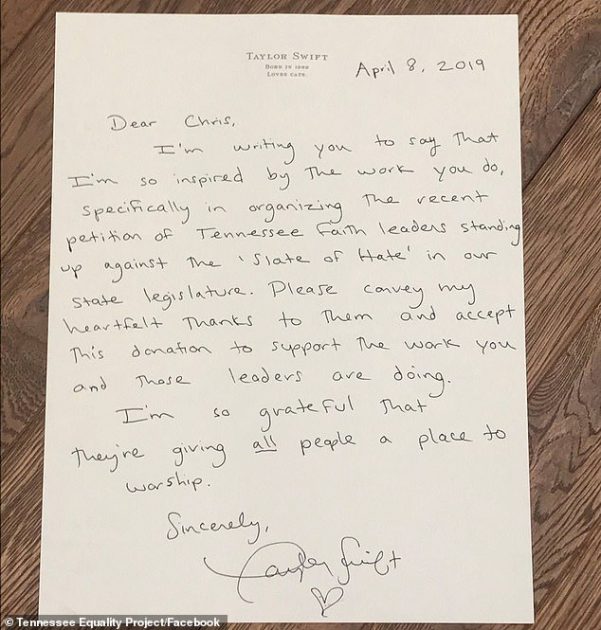 TAYLOR SWIFT
BORN IN 1989
LOVES CATS
April 8, 2019
Dear Chris,
I'm writing you to say that
I'm so inspired by the work you do,
specifically in organizing the recent
petition of Tennessee faith leaders standing
up against the 'Slate of Hate' in our
state legislature. Please convey my
heartfelt thanks to them and accept
this donation to support the work you
and those leaders are doing.
I'm so grateful that
they're giving all people a place to
worship.
Sincerely,
Taylor Swift
© Tennessee Equality Project/Facebook